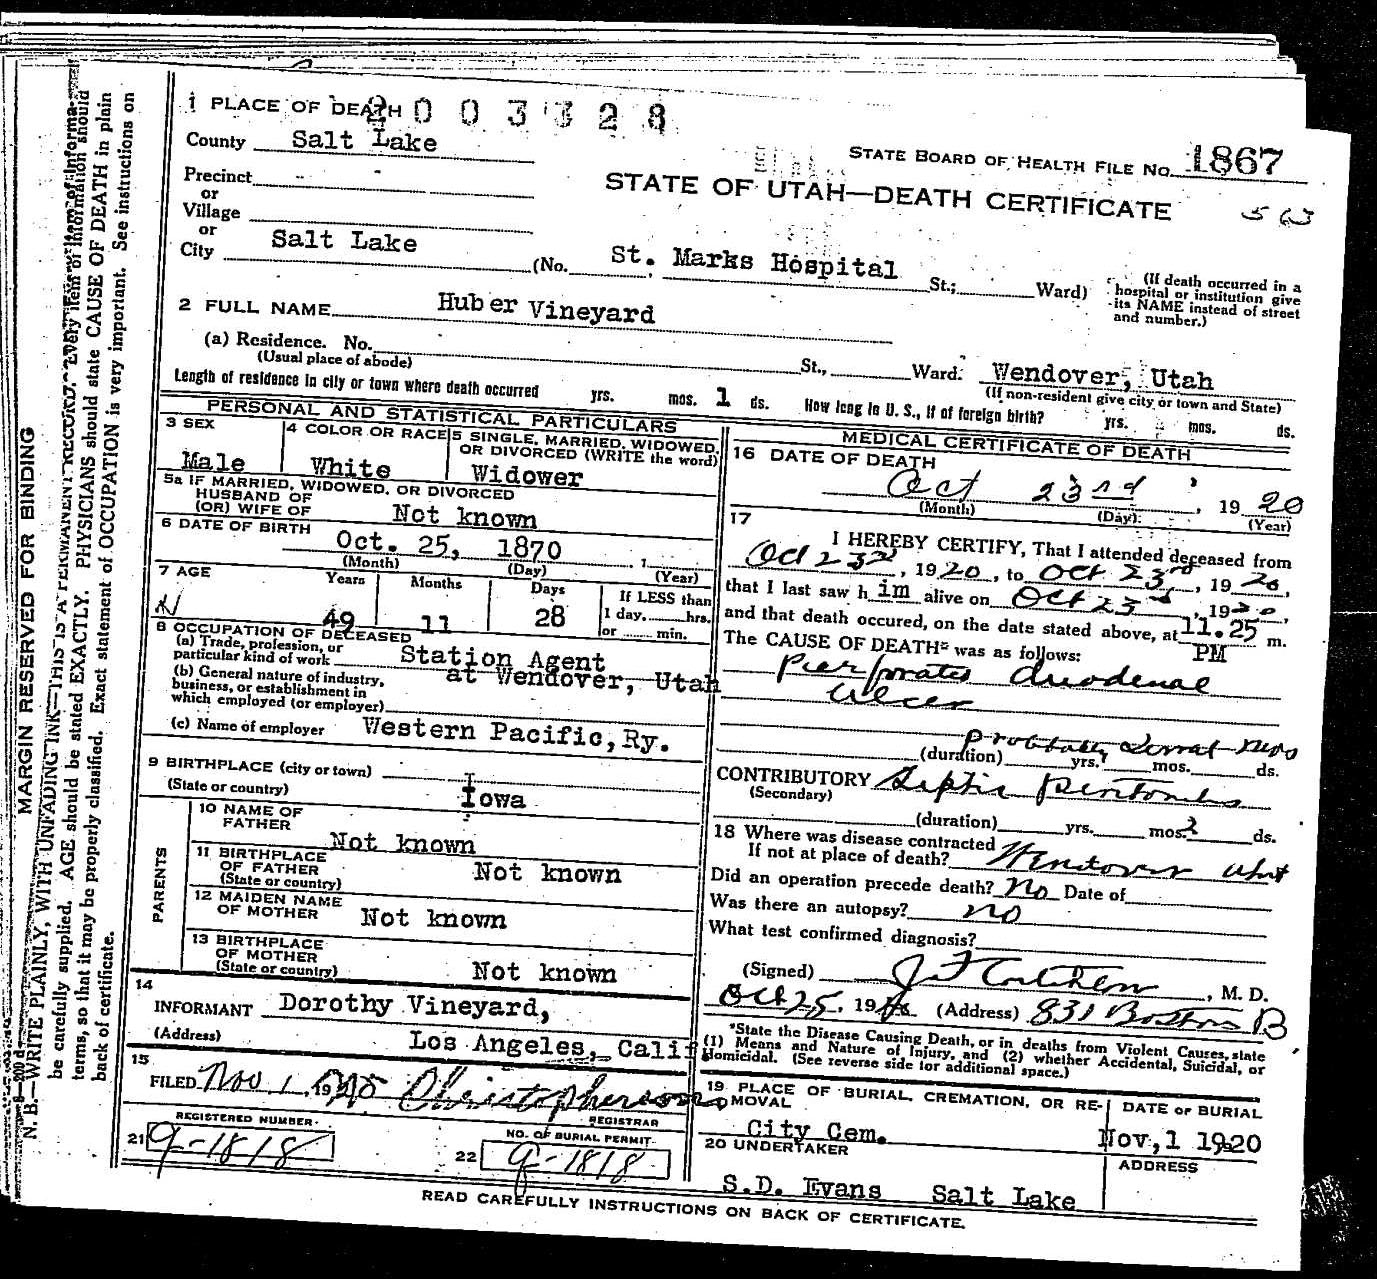 1 PLACE OF DEATH 2003328
County Salt Lake
STATE BOARD OF HEALTH FILE No. 1867
Precinct
or
Village
or
City Salt Lake
STATE OF UTAH—DEATH CERTIFICATE
(No. St. Marks Hospital St.; Ward)
(If death occurred in a
hospital or institution give
its NAME instead of street
and number.)
2 FULL NAME Huber Vineyard
(a) Residence. No. St., Ward. Wendover, Utah
(Usual place of abode)
(If non-resident give city or town and State)
Length of residence in city or town where death occurred yrs. mos. 1 ds. How long in U. S., if of foreign birth? yrs. mos. ds.
PERSONAL AND STATISTICAL PARTICULARS
3 SEX
Male
4 COLOR OR RACE
White
5 SINGLE, MARRIED, WIDOWED,
OR DIVORCED (WRITE the word)
Widower
5a IF MARRIED, WIDOWED, OR DIVORCED
HUSBAND OF
(OR) WIFE OF Not known
6 DATE OF BIRTH
Oct. 25, 1870
(Month) (Day) (Year)
7 AGE
Years Months Days
49 11 28
If LESS than
1 day, hrs.
or min.
8 OCCUPATION OF DECEASED
(a) Trade, profession, or
particular kind of work Station Agent
(b) General nature of industry, at Wendover, Utah
business, or establishment in
which employed (or employer)
(c) Name of employer Western Pacific, Ry.
9 BIRTHPLACE (city or town)
(State or country) Iowa
PARENTS
10 NAME OF
FATHER Not known
11 BIRTHPLACE
OF FATHER Not known
(State or country)
12 MAIDEN NAME
OF MOTHER Not known
13 BIRTHPLACE
OF MOTHER
(State or country) Not known
14
INFORMANT Dorothy Vineyard,
(Address) Los Angeles, Calif
15
FILED Nov 1, 1920 Christopherson
REGISTRAR
REGISTERED NUMBER
21 9-1818
NO. OF BURIAL PERMIT
22 9-1818
MEDICAL CERTIFICATE OF DEATH
16 DATE OF DEATH
Oct 23rd, 1920
(Month) (Day) (Year)
17
I HEREBY CERTIFY, That I attended deceased from
Oct 23rd, 1920, to Oct 23rd, 1920,
that I last saw him alive on Oct 23rd, 1920,
and that death occured, on the date stated above, at 11.25 m.
PM
The CAUSE OF DEATH* was as follows:
duodenal
ulcer
(duration) yrs. mos. ds.
CONTRIBUTORY Septic
(Secondary)
(duration) yrs. mos. 2 ds.
18 Where was disease contracted
If not at place of death? Wendover
Did an operation precede death? No Date of
Was there an autopsy? no
What test confirmed diagnosis?
(Signed) , M. D.
Oct 25, 19 (Address) 831 Boston B
*State the Disease Causing Death, or in deaths from Violent Causes, state
(1) Means and Nature of Injury, and (2) whether Accidental, Suicidal, or
Homicidal. (See reverse side for additional space.)
19 PLACE OF BURIAL, CREMATION, OR RE-
MOVAL
City Cem.
DATE OF BURIAL
Nov, 1 1920
20 UNDERTAKER
S.D. Evans
ADDRESS
Salt Lake
READ CAREFULLY INSTRUCTIONS ON BACK OF CERTIFICATE.
MARGIN RESERVED FOR BINDING
N. B.—WRITE PLAINLY, WITH UNFADING INK—THIS IS A PERMANENT RECORD. Every item of information should
be carefully supplied. AGE should be stated EXACTLY. PHYSICIANS should state CAUSE OF DEATH in plain
terms, so that it may be properly classified. Exact statement of OCCUPATION is very important. See instructions on
back of certificate.